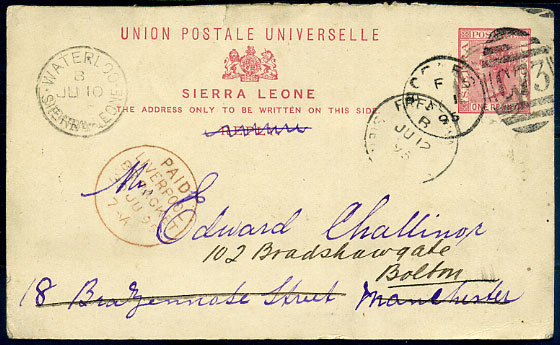 UNION POSTALE UNIVERSELLE
SIERRA LEONE
THE ADDRESS ONLY TO BE WRITTEN ON THIS SIDE
WATERLOO
B
JU 10
SIERRA-LEONE
JU 12
95
PAID
LIVERPOOL
PACKET
Mr Edward Challinor
102 Bradshawgate
Bolton
18 Brazennose Street Manchester